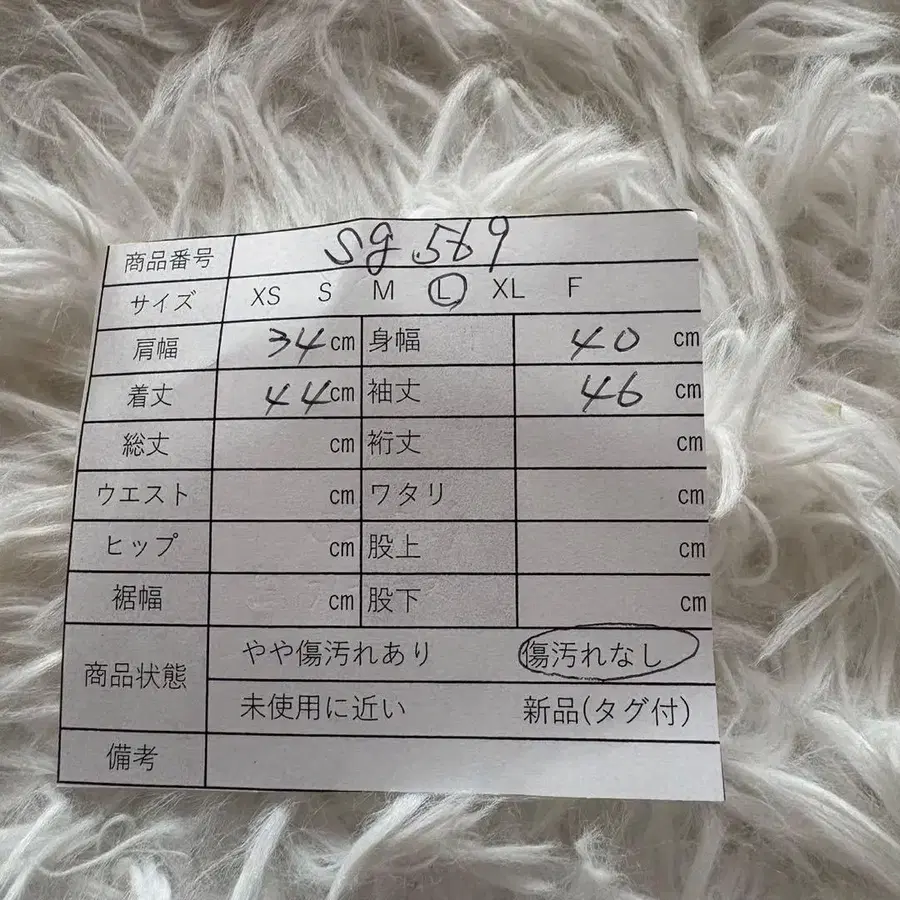 商品番号 sg 569
サイズ XS S M L XL F
肩幅 34 cm 身幅 40 cm
着丈 44 cm 袖丈 46 cm
総丈 cm 裄丈 cm
ウエスト cm ワタリ cm
ヒップ cm 股上 cm
裾幅 cm 股下 cm
商品状態 やや傷汚れあり 傷汚れなし
未使用に近い 新品(タグ付)
備考